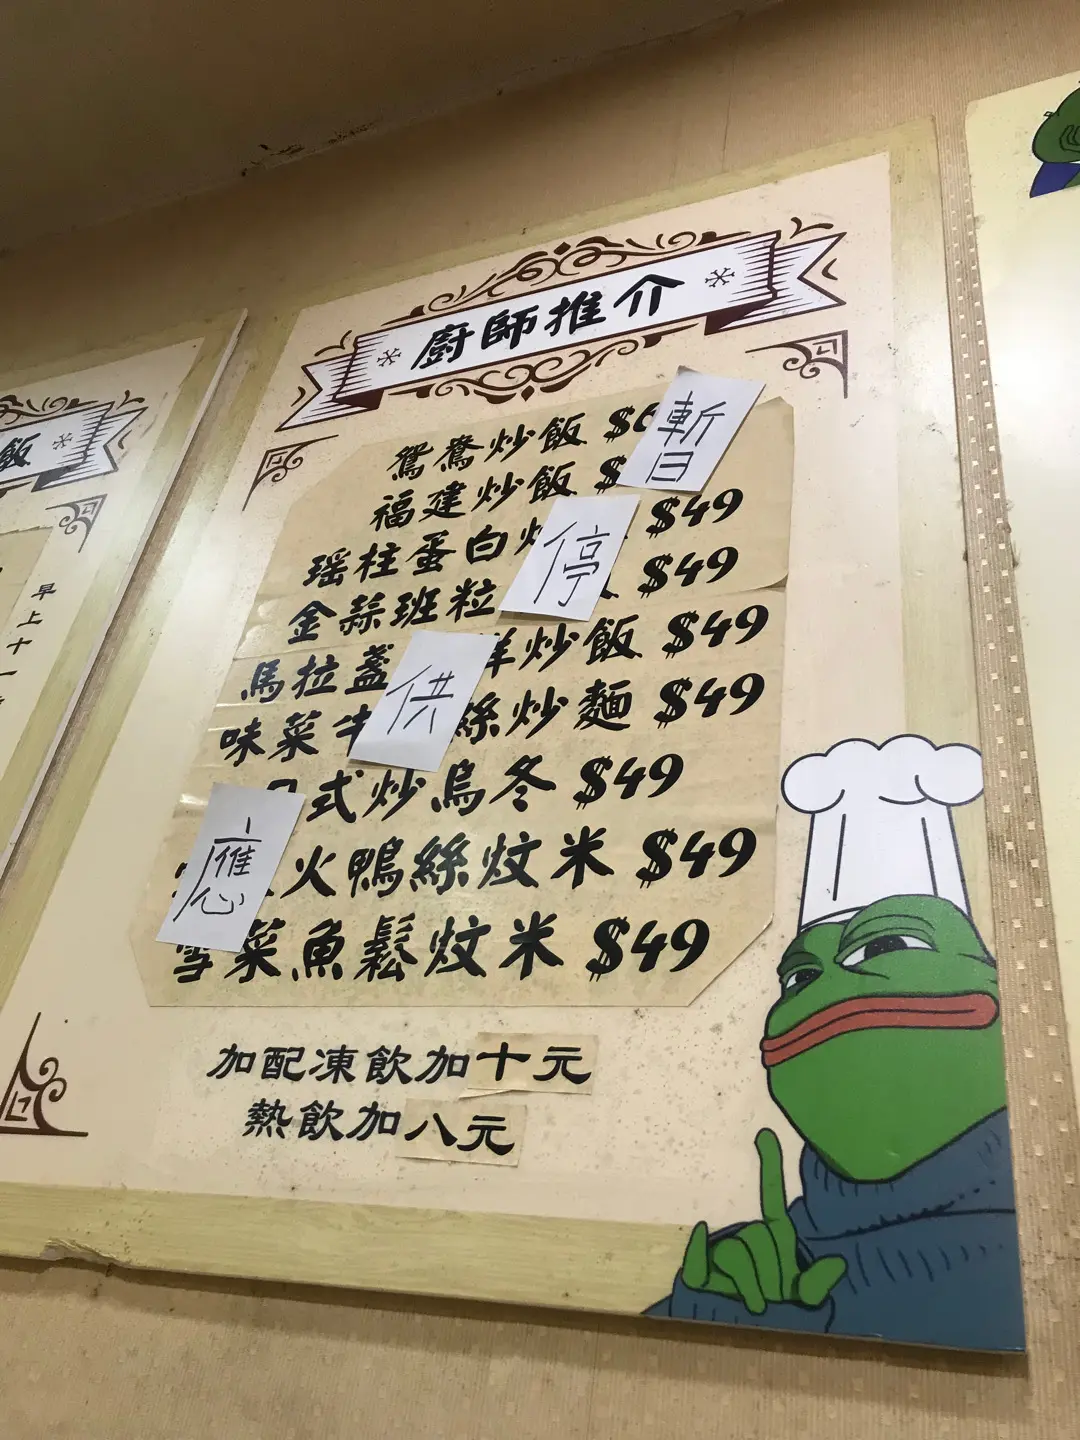 廚師推介
鴛鴦炒飯 $6
福建炒飯 $
瑤柱蛋白炒 $49
金蒜班粒 $49
馬拉盞 鮮炒飯 $49
味菜牛 絲炒麵 $49
日式炒烏冬 $49
火鴨絲炆米 $49
雪菜魚鬆炆米 $49
暫
停
供
應
加配凍飲加十元
熱飲加八元
飯
早上十一